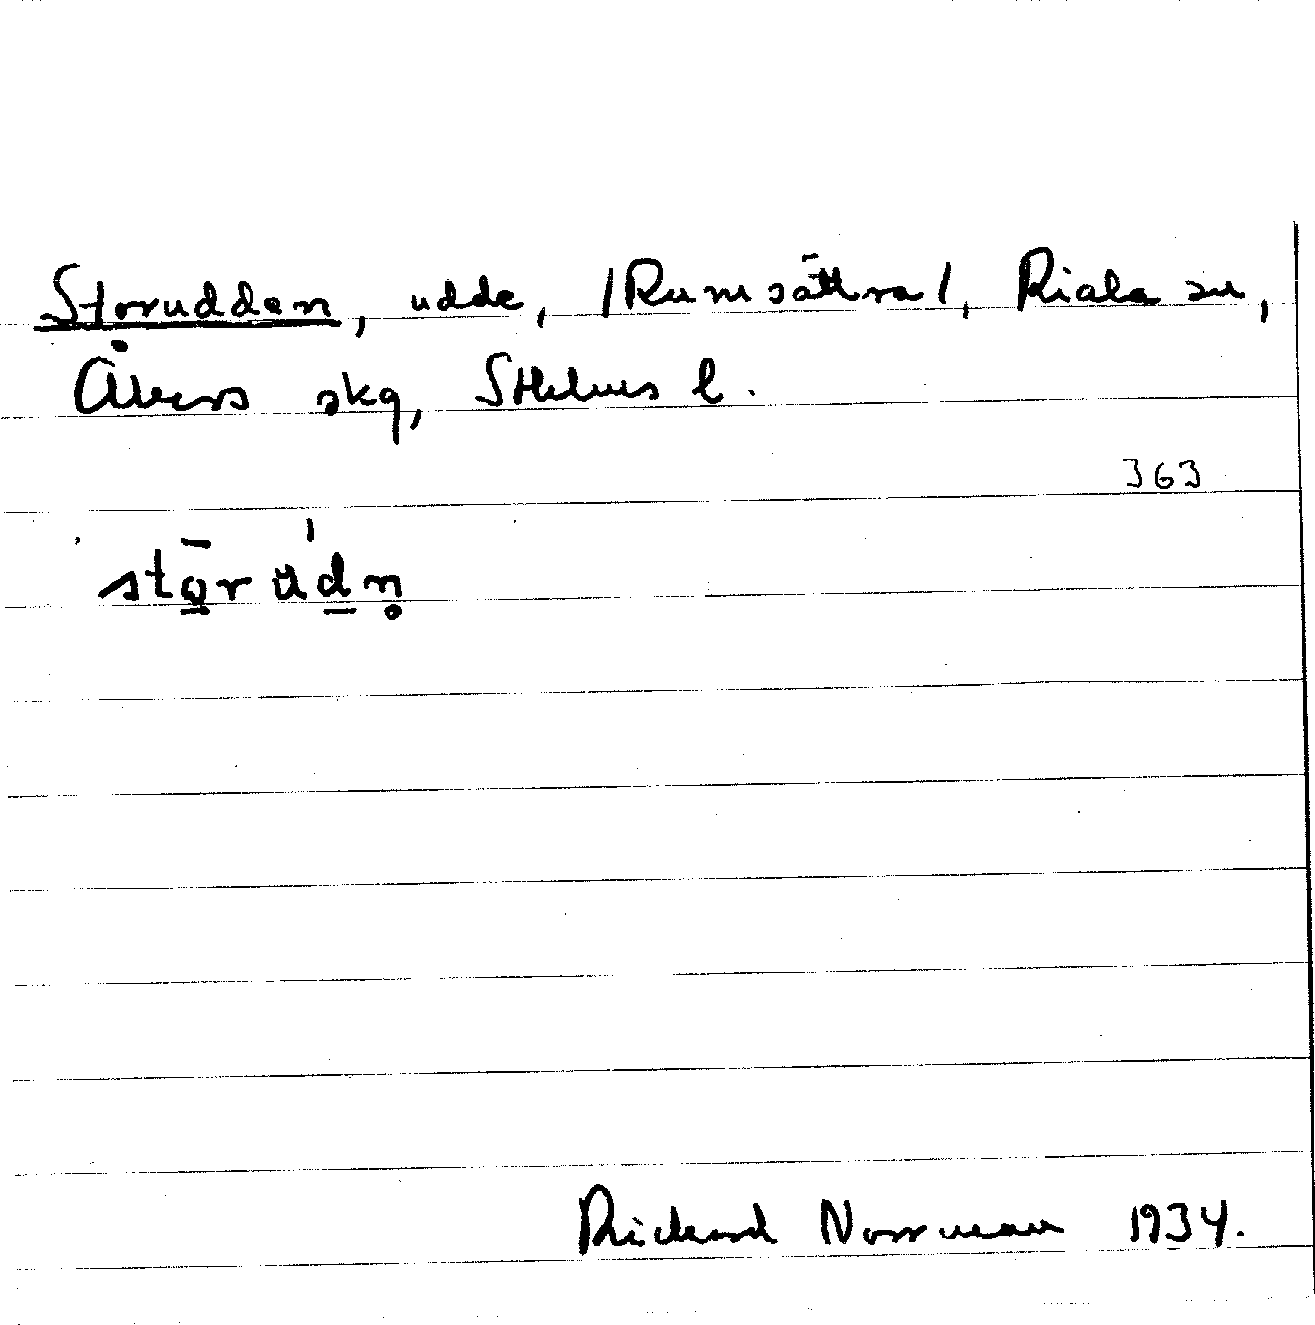 Storudden, udde, /Rumsättra/, Riala sn,
Åkers skg, Sthlms l.
363
stō̲r ŭ́d̲n̥
Rickard Norrman 1934.